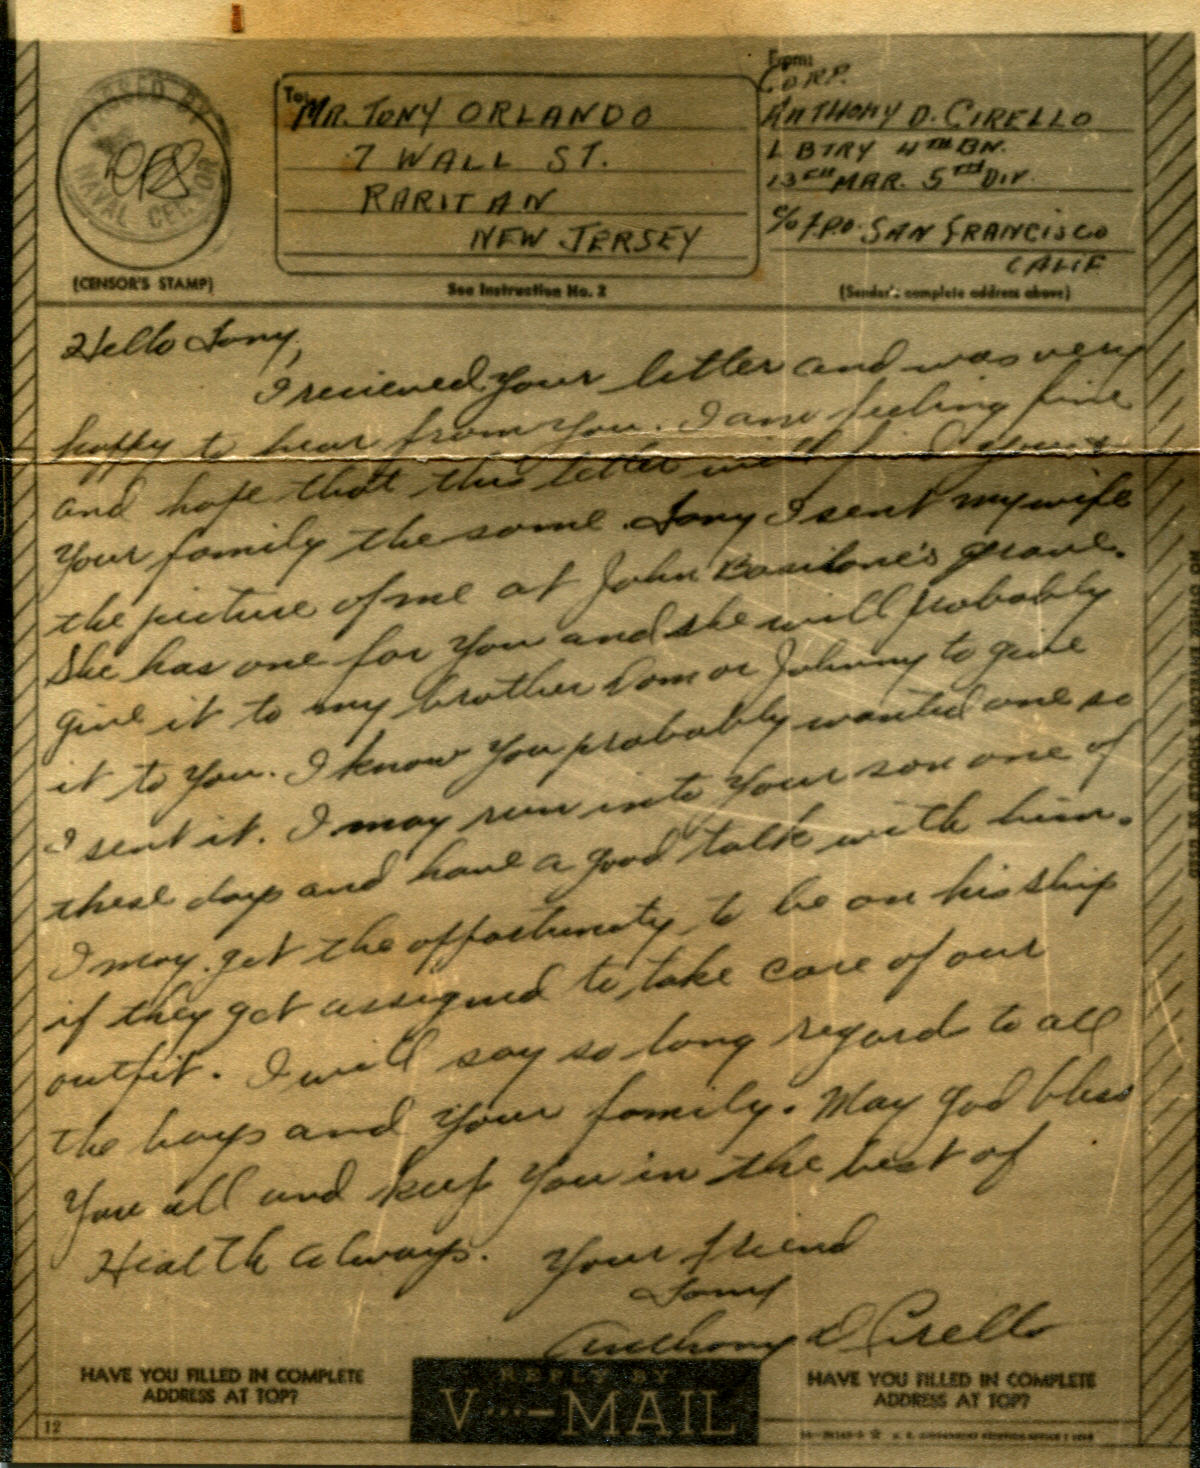 To:
MR. TONY ORLANDO
7 WALL ST.
RARITAN
NEW JERSEY
See Instruction No. 2
From:
CORP.
ANTHONY D. CIRELLO
L BTRY 4TH BN.
13TH MAR. 5TH DIV.
c/o F.P.O. SAN FRANCISCO
CALIF
(Sender's complete address above)
PASSED BY
NAVAL CENSOR
(CENSOR'S STAMP)
Hello Tony,
I recieved your letter and was very
happy to hear from you. I am feeling fine
and hope that this letter will find you &
your family the same. Tony I sent my wife
the picture of me at John Basilone's grave.
She has one for you and she will probably
give it to my brother Dom or Johnny to give
it to you. I know you probably wanted one so
I sent it. I may run into your son one of
these days and have a good talk with him.
I may get the opportunity to be on his ship
if they get assigned to take care of our
outfit. I will say so long regards to all
the boys and your family. May God bless
you all and keep you in the best of
Health always. Your friend
Tony
Anthony D Cirello
HAVE YOU FILLED IN COMPLETE
ADDRESS AT TOP?
REPLY BY
V···—MAIL
HAVE YOU FILLED IN COMPLETE
ADDRESS AT TOP?
12